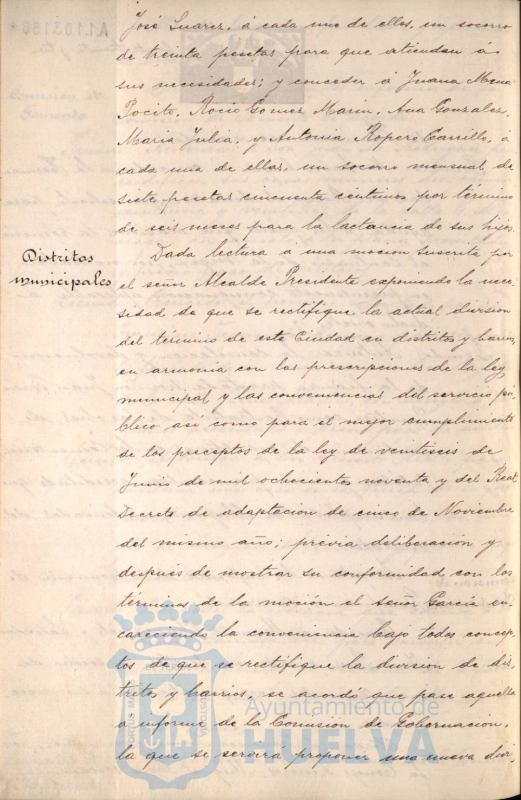 José Suarez, á cada uno de ellos, un socorro
de treinta pesetas para que atiendan á
sus necesidades; y conceder á Juana Mena
Pocito, Rocio Gomez Marin, Ana Gonzalez,
Maria Julia, y Antonia Ropero Carrillo, á
cada una de ellas, un socorro mensual de
siete pesetas cincuenta céntimos por término
de seis meses para la lactancia de sus hijos.
Distritos
municipales
Dada lectura á una mocion suscrita por
el señor Alcalde Presidente exponiendo la nece-
sidad de que se rectifique la actual division
del término de esta Ciudad en distritos y barrios,
en armonia con las prescripciones de la ley
municipal y las conveniencias del servicio pú-
blico así como para el mejor cumplimiento
de los preceptos de la ley de veintiseis de
Junio de mil ochocientos noventa y del Real
Decreto de adaptacion de cinco de Noviembre
del mismo año; prévia deliberación y
después de mostrar su conformidad con los
términos de la moción el señor García en-
careciendo la conveniencia bajo todos concep-
tos de que se rectifique la division de dis-
tritos y barrios, se acordó que pase aquella
a informe de la Comisión de Gobernación,
la que se servirá proponer una nueva divi-
Ayuntamiento de
HUELVA